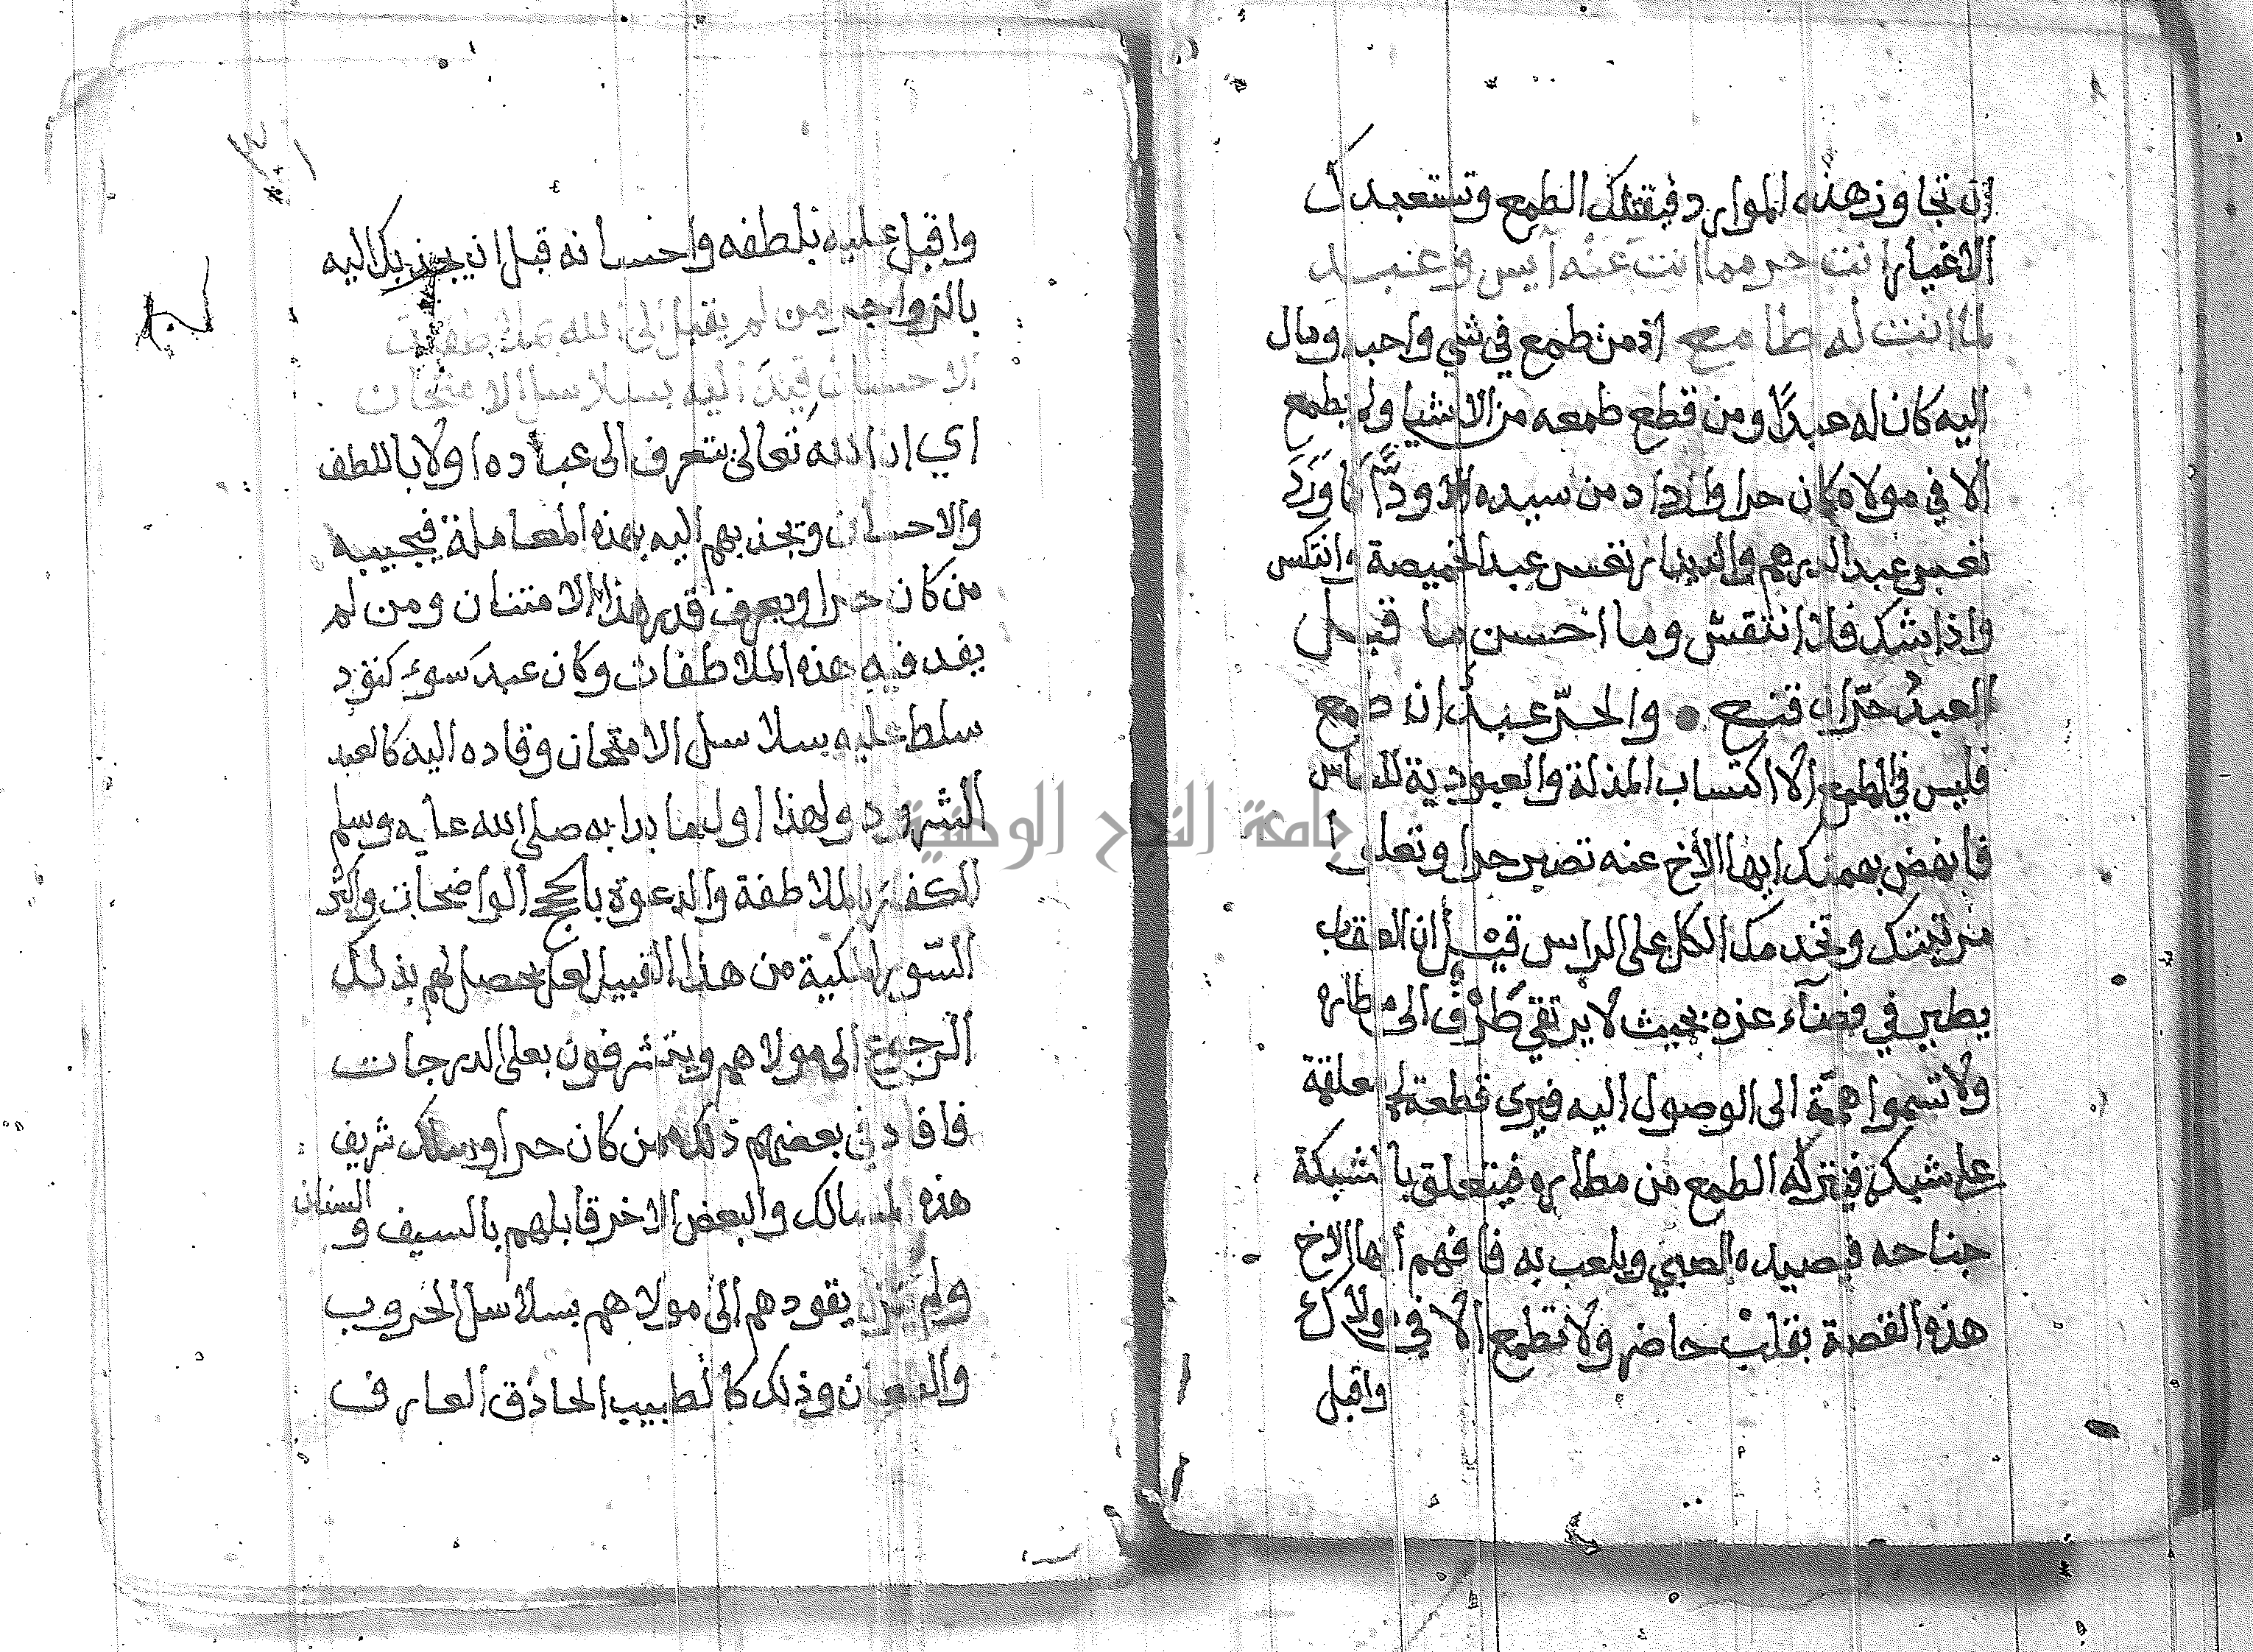 ان تجاوز هذه الموارد فيقتلك الطمع وتستعبدك
الاغيار انت حر مما انت عنه آيس وعبد
لما انت له طامع اذ من طمع في شي واحبه ومال
اليه كان له عبدًا ومن قطع طمعه من الاشيا ولم يطمع
الا في مولاه كان حرا وازداد من سيده الا ودًّا لما ورد
تعس عبد الدرهم والدينار تعس عبد الخميصة وانتكس
واذا شك فلا انتقش وما احسن ما قيل
العبدُ حرّ ان قنع • والحرّ عبد ان طمع
فليس في الطمع الا اكتساب المذلة والعبودية للناس
فانهض بهمتك ايها الأخ عنه تصير حرا وتعلى
مرتبتك وتخدمك الكل على الراس قيل ان العقاب
يطير في فضآء عزه بحيث لا يرتقي طَرْفٌ الى مطاره
ولا تسموا همّة الى الوصول اليه فيرى قطعة لحم معلقة
على شبكة فينزله الطمع من مطاره فيتعلق بالشبكة
جناحه فيصيده الصبي ويلعب به فافهم أيها الاخ
هذه القصة بقلب حاضر ولا تطمع الا في مولاك
واقبل
٣١
واقبل عليه بلطفه واحسانه قبل ان يجذبك اليه
بالزواجر من لم يقبل الى الله بملاطفات
الاحسان قيد اليه بسلاسل الامتحان
اي ان الله تعالى يتعرف الى عباده اولا باللطف
والاحسان ويجذبهم اليه بهذه المعاملة فيجيبه
من كان حرا ويعرف قدر هذا الامتنان ومن لم
يفد فيه هذه الملاطفات وكان عبد سوء كنود
سلط عليه سلاسل الامتحان وقاده اليه كالعبد
الشرود ولهذا اول ما بدا به صلى الله عليه وسلم
الكفار بالملاطفة والدعوة بالحجج الواضحات واكثر
السّور المكية من هذا القبيل لعل يحصل لهم بذلك
الرجوع الى مولاهم ويتشرفون بعلى الدرجات
فافاد في بعضهم ذلك ممن كان حرا وسلك شريف
هذه المسالك والبعض الاخر قابلهم بالسيف والسنان
ولم يزل يقودهم الى مولاهم بسلاسل الحروب
والطعان وذلك كالطبيب الحاذق العارف
جامعة النجاح الوطنية